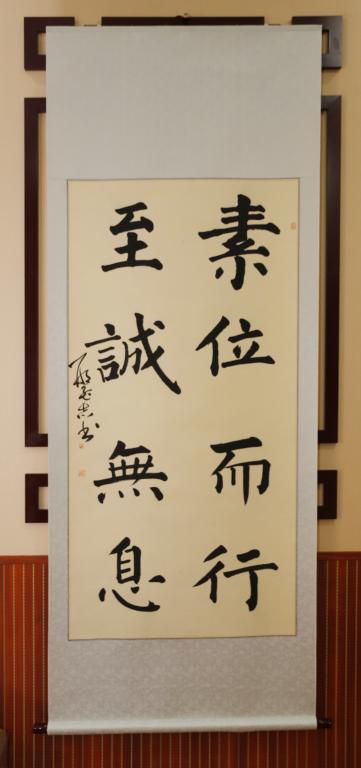 素位而行
至誠無息